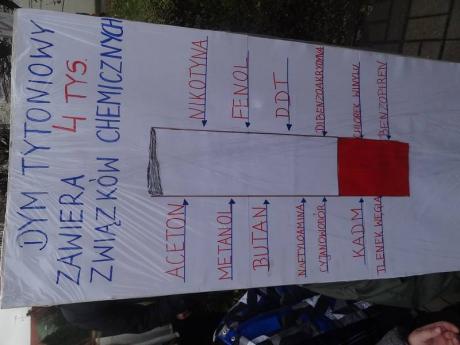 DYM TYTONIOWY
ZAWIERA 4 TYS.
ZWIĄZKÓW CHEMICZNYCH
NIKOTYNA
FENOL
DDT
DIBENZOAKRYDYNA
CHLOREK WINYLU
BENZOPIREN
ACETON
METANOL
BUTAN
NAFTYLOAMINA
CYJANOWODÓR
KADM
TLENEK WĘGLA